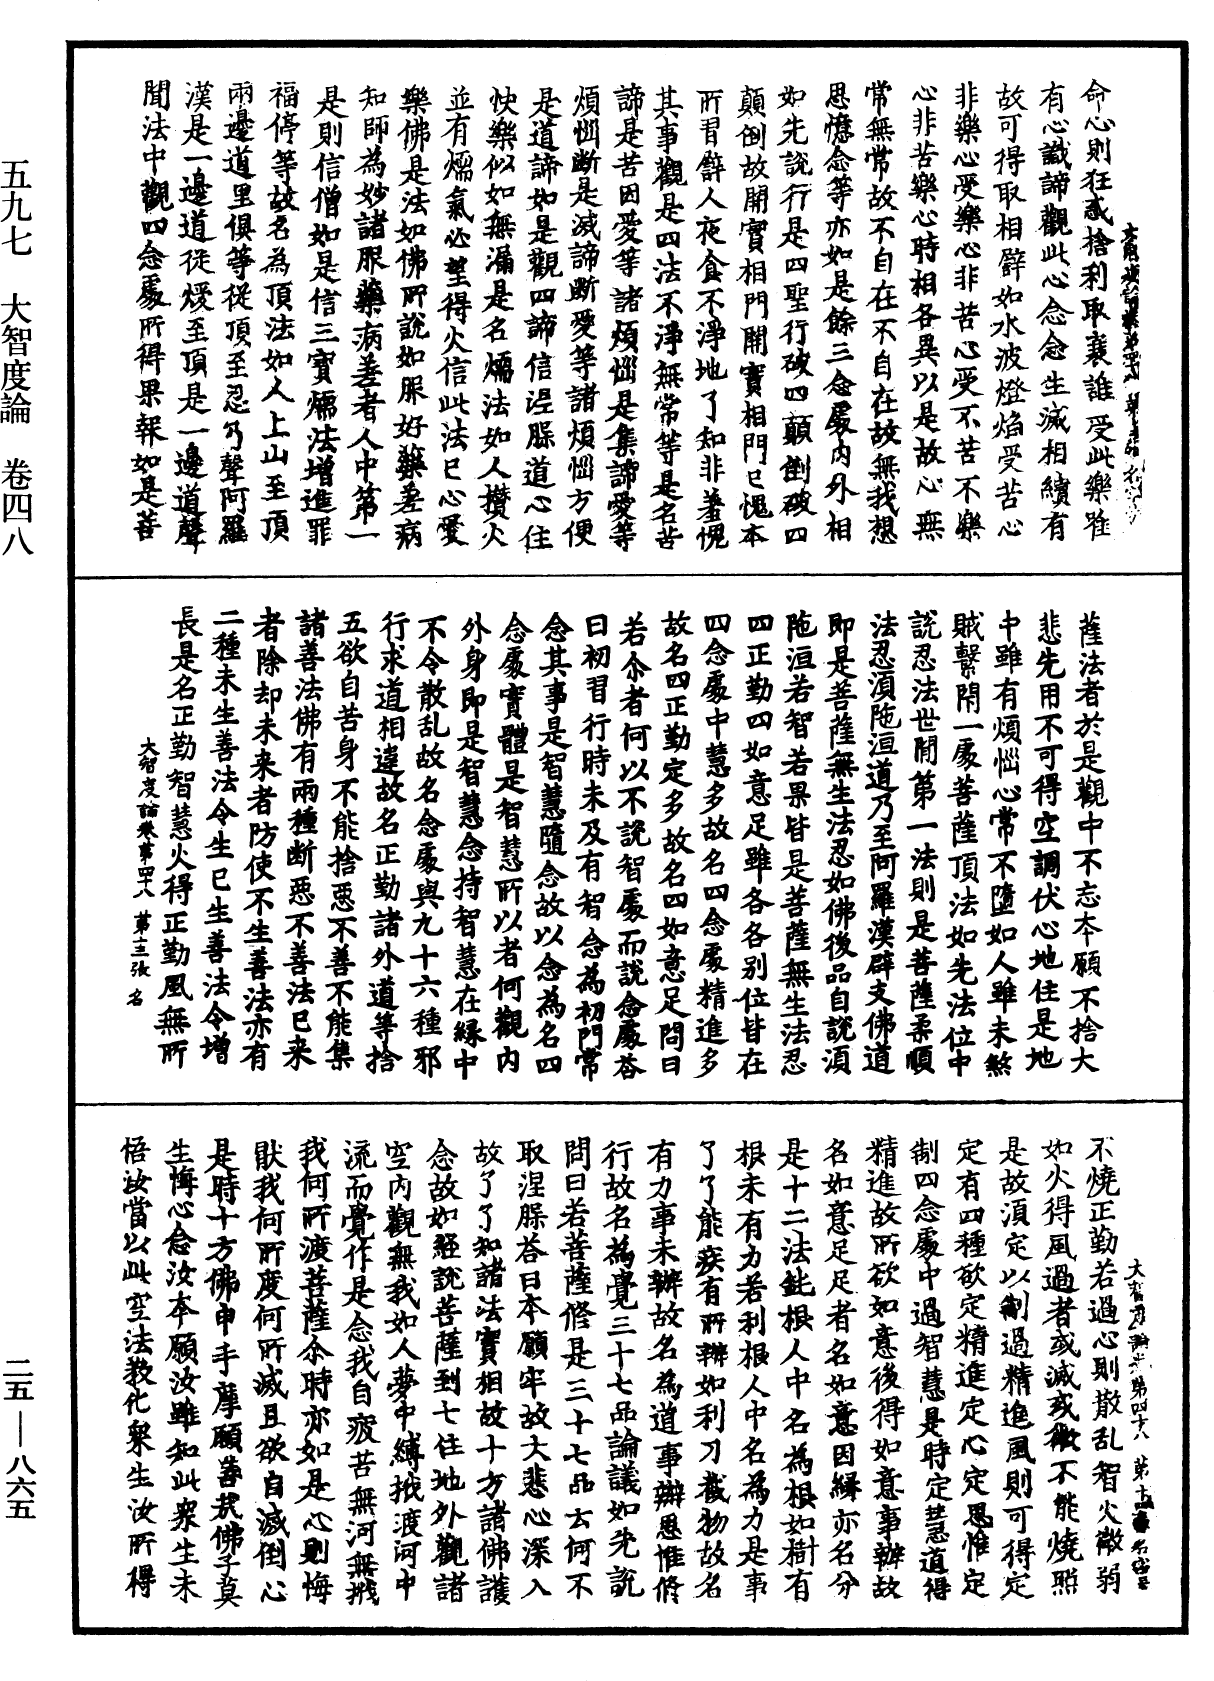 命心則狂惑捨利取衰誰受此樂唯
有心識諦觀此心念念生滅相續有
故可得取相辟如水波燈焰受苦心
非樂心受樂心非苦心受不苦不樂
心非苦樂心時相各異以是故心無
常無常故不自在不自在故無我想
思憶念等亦如是餘三念處內外相
如先說行是四聖行破四顛倒破四
顛倒故開實相門開實相門已愧本
所習辟人夜食不淨地了知非羞愧
其事觀是四法不淨無常等是名苦
諦是苦因愛等諸煩惱是集諦愛等
煩惱斷是滅諦斷愛等諸煩惱方便
是道諦如是觀四諦信涅脲道心住
快樂似如無漏是名煗法如人攢火
並有煗氣必望得火信此法已心愛
樂佛是法如佛所說如服好藥差病
知師為妙諸服藥病差者人中第一
是則信僧如是信三寶煗法增進罪
福停等故名為頂法如人上山至頂
兩邊道里俱等從頂至忍乃聲阿羅
漢是一邊道從煗至頂是一邊道聲
聞法中觀四念處所得果報如是菩
薩法者於是觀中不忘本願不捨大
悲先用不可得空調伏心地住是地
中雖有煩惱心常不墮如人雖未煞
賊繫閇一處菩薩頂法如先法位中
說忍法世間第一法則是菩薩柔順
法忍湏陁洹道乃至阿羅漢辟支佛道
即是菩薩無生法忍如佛後品自說湏
陁洹若智若果皆是菩薩無生法忍
四正勤四如意足雖各各別位皆在
四念處中慧多故名四念處精進多
故名四正勤定多故名四如意足問曰
若尒者何以不說智處而說念處荅
曰初習行時未及有智念為初門常
念其事是智慧隨念故以念為名四
念處實體是智慧所以者何觀內
外身即是智慧念持智慧在緣中
不令散乱故名念處與九十六種邪
行求道相違故名正勤諸外道等捨
五欲自苦身不能捨惡不善不能集
諸善法佛有兩種斷惡不善法已来
者除却未来者防使不生善法亦有
二種未生善法令生已生善法令增
長是名正勤智慧火得正勤風無所
大智度論卷第四十八 第十三張 名
不燒正勤若過心則散乱智火微弱
如火得風過者或滅或微不能燒照
是故湏定以制過精進風則可得定
定有四種欲定精進定心定思惟定
制四念處中過智慧是時定慧道得
精進故所欲如意後得如意事辦故
名如意足足者名如意因緣亦名分
是十二法鈍根人中名為根如樹有
根未有力若利根人中名為力是事
了了能疾有所辦如利刀截物故名
有力事未辦故名為道事辦思惟脩
行故名為覺三十七品論議如先說
問曰若菩薩修是三十七品云何不
取涅脲荅曰本願牢故大悲心深入
故了了知諸法實相故十方諸佛護
念故如經說菩薩到七住地外觀諸
空內觀無我如人夢中縛栰渡河中
流而覺作是念我自疲苦無河無栰
我何所渡菩薩尒時亦如是心則悔
猒我何所度何所滅且欲自滅倒心
是時十方佛申手摩願善我佛子莫
生悔心念汝本願汝雖知此衆生未
悟汝當以此空法教化衆生汝所得
五九七　大智度論　卷四八
二五—八六五